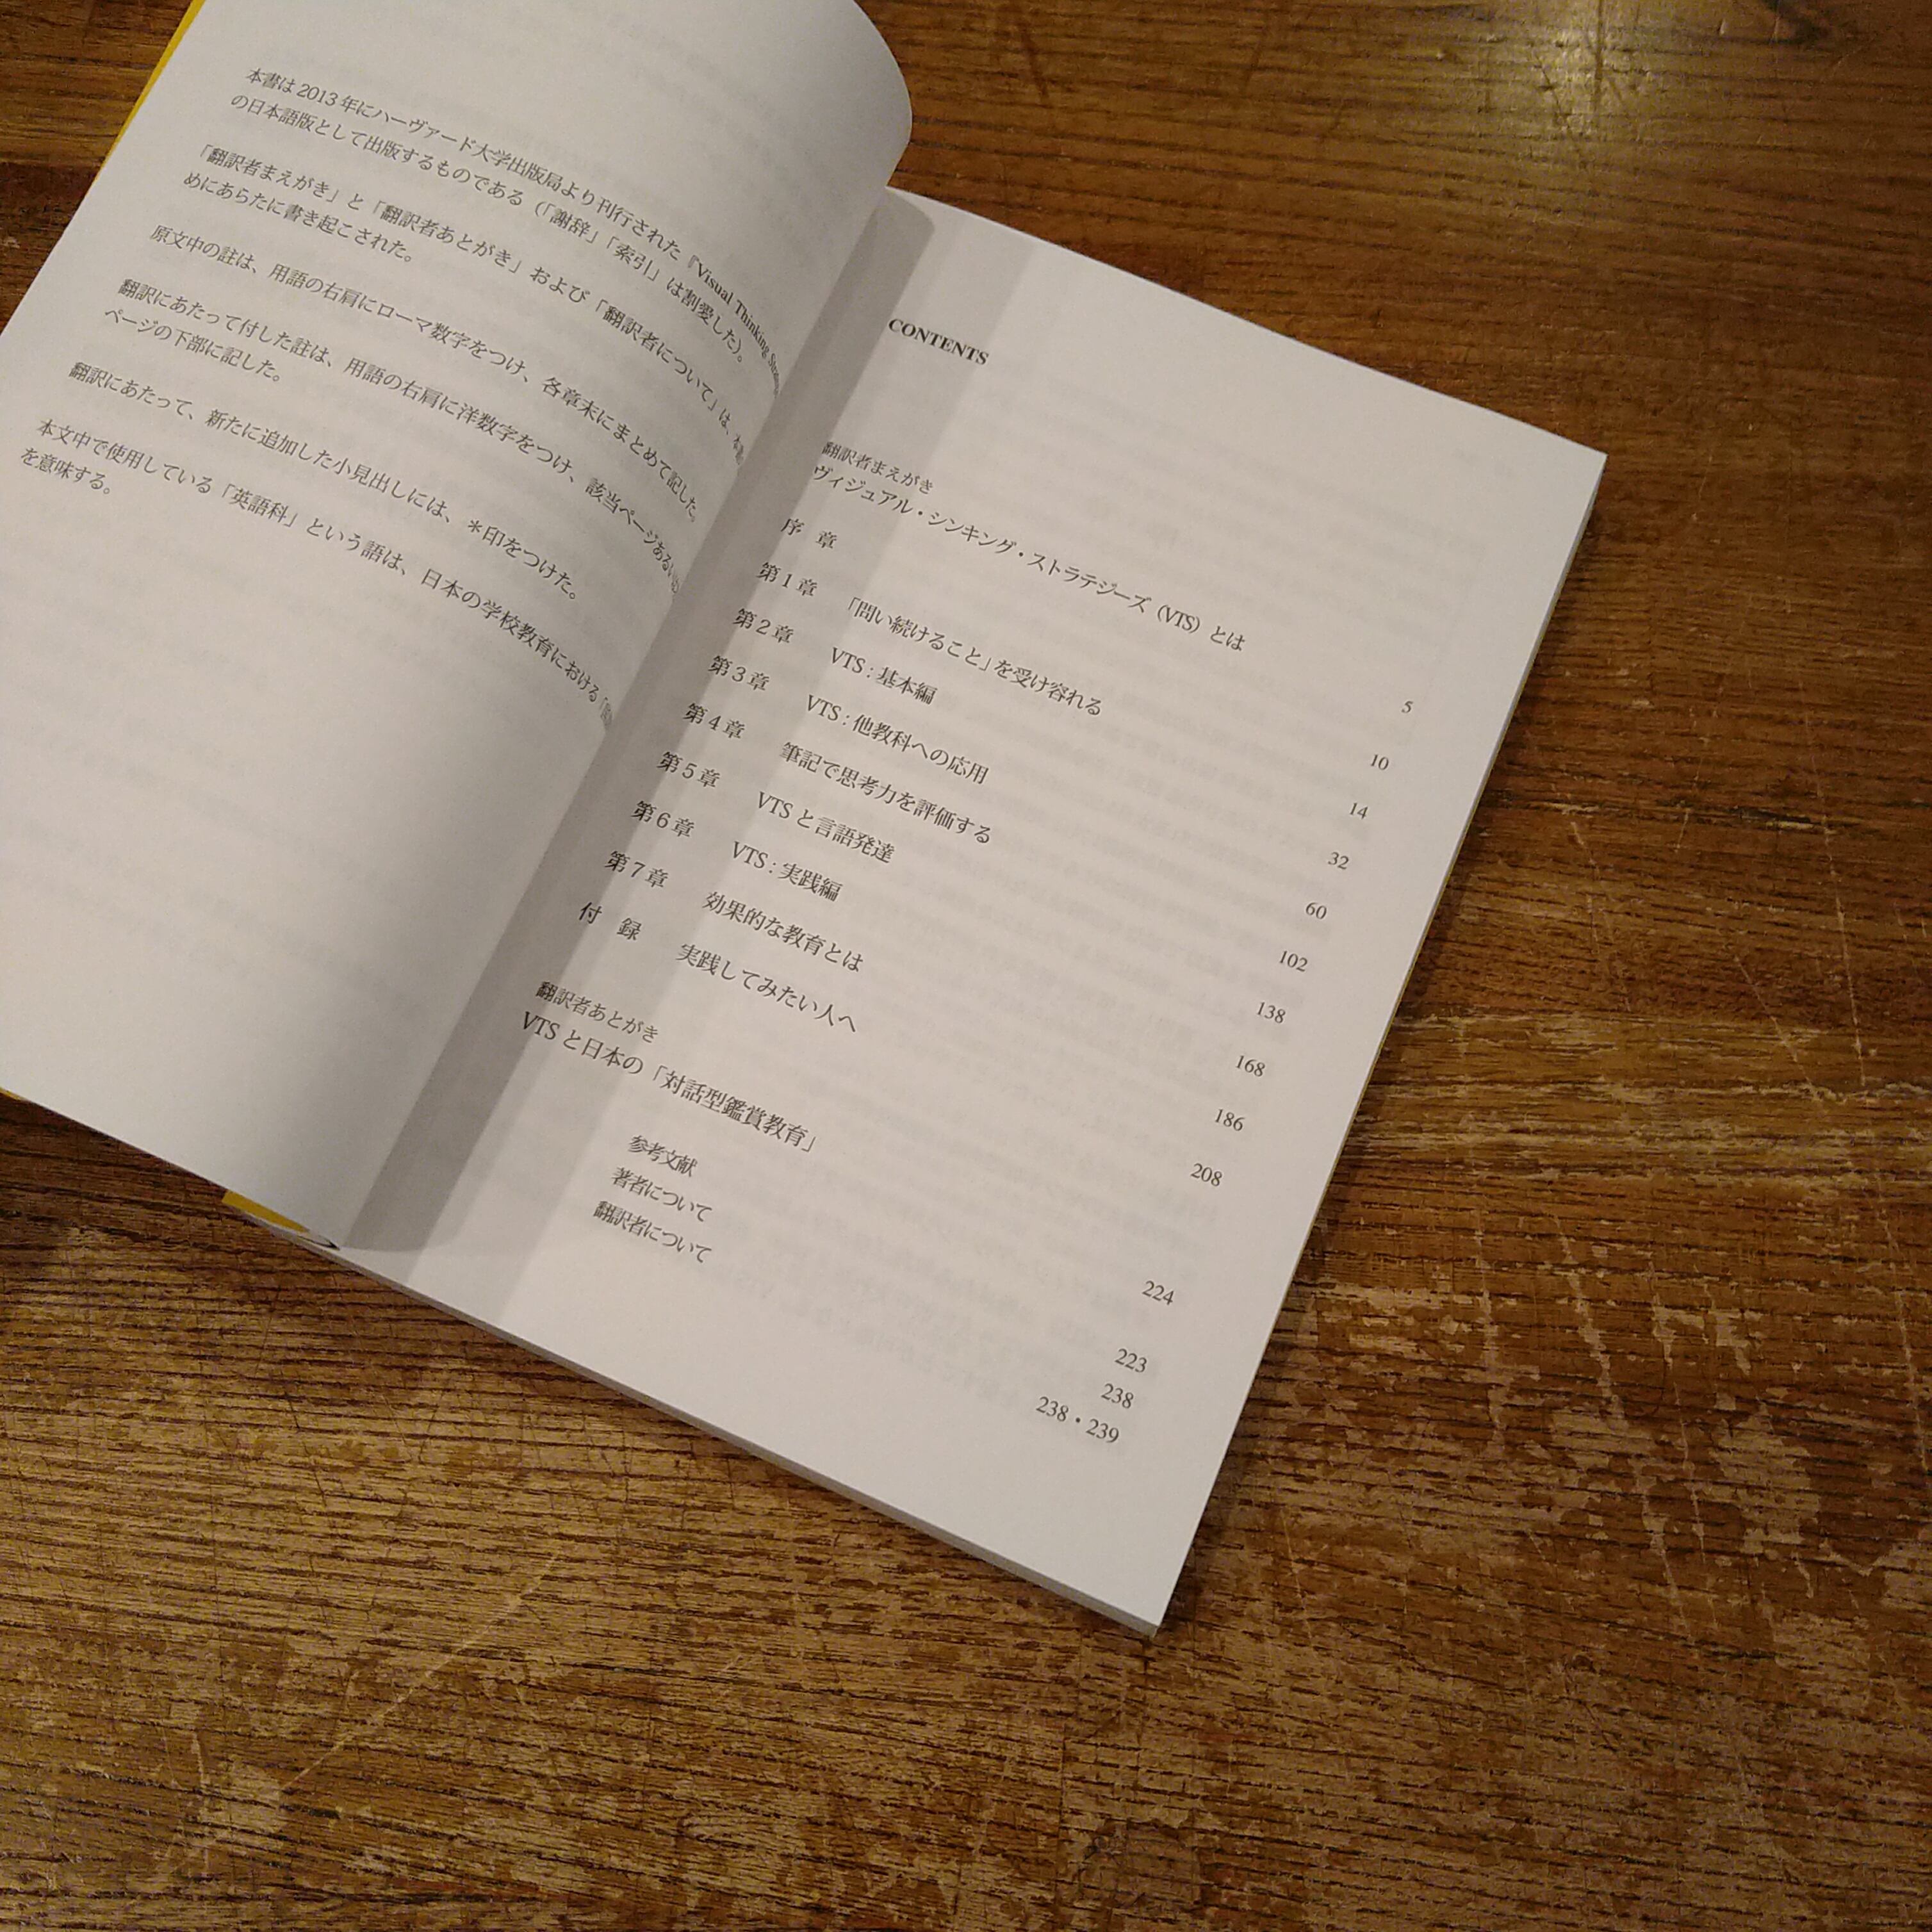 本書は 2013 年にハーヴァード大学出版局より刊行された『Visual Thinking
の日本語版として出版するものである（「謝辞」「索引」は割愛した）。
「翻訳者まえがき」と「翻訳者あとがき」および「翻訳者について」は、
めにあらたに書き起こされた。
原文中の註は、用語の右肩にローマ数字をつけ、各章末にまとめて記した。
翻訳にあたって付した註は、用語の右肩に洋数字をつけ、該当ページあるいは
ページの下部に記した。
翻訳にあたって、新たに追加した小見出しには、＊印をつけた。
本文中で使用している「英語科」という語は、日本の学校教育における
を意味する。
CONTENTS
翻訳者まえがき
ヴィジュアル・シンキング・ストラテジーズ（VTS）とは 5
序 章 10
第1章 「問い続けること」を受け容れる 14
第2章 VTS : 基本編 32
第3章 VTS : 他教科への応用 60
第4章 筆記で思考力を評価する 102
第5章 VTS と言語発達 138
第6章 VTS : 実践編 168
第7章 効果的な教育とは 186
付 録 実践してみたい人へ 208
翻訳者あとがき
VTS と日本の「対話型鑑賞教育」 224
参考文献 223
著者について 238
翻訳者について 238・239